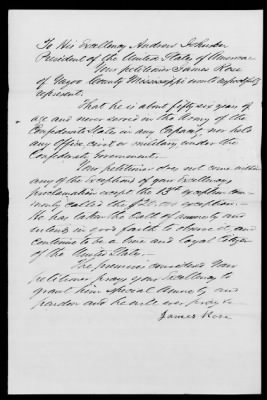 To His Excellency Andrew Johnson
President of the United States of America
Your petitioner James Rose
of Yazoo County Mississippi would respectfully
represent.
That he is about fifty six years of
age and never served in the Army of the
Confederate States in any capacity, nor held
any Office civil or military under the
Confederate Government.
Your petitioner does not come within
any of the exceptions of your Excellency's
proclamation except the 13th exception com-
monly called the $20,000 exception.
He has taken the Oath of amnesty and
intends in good faith to observe it, and
continue to be a true and loyal Citizen
of the United States.
The premises considered Your
petitioner prays your Excellency to
grant him special Amnesty and
pardon and he will ever pray &c
James Rose